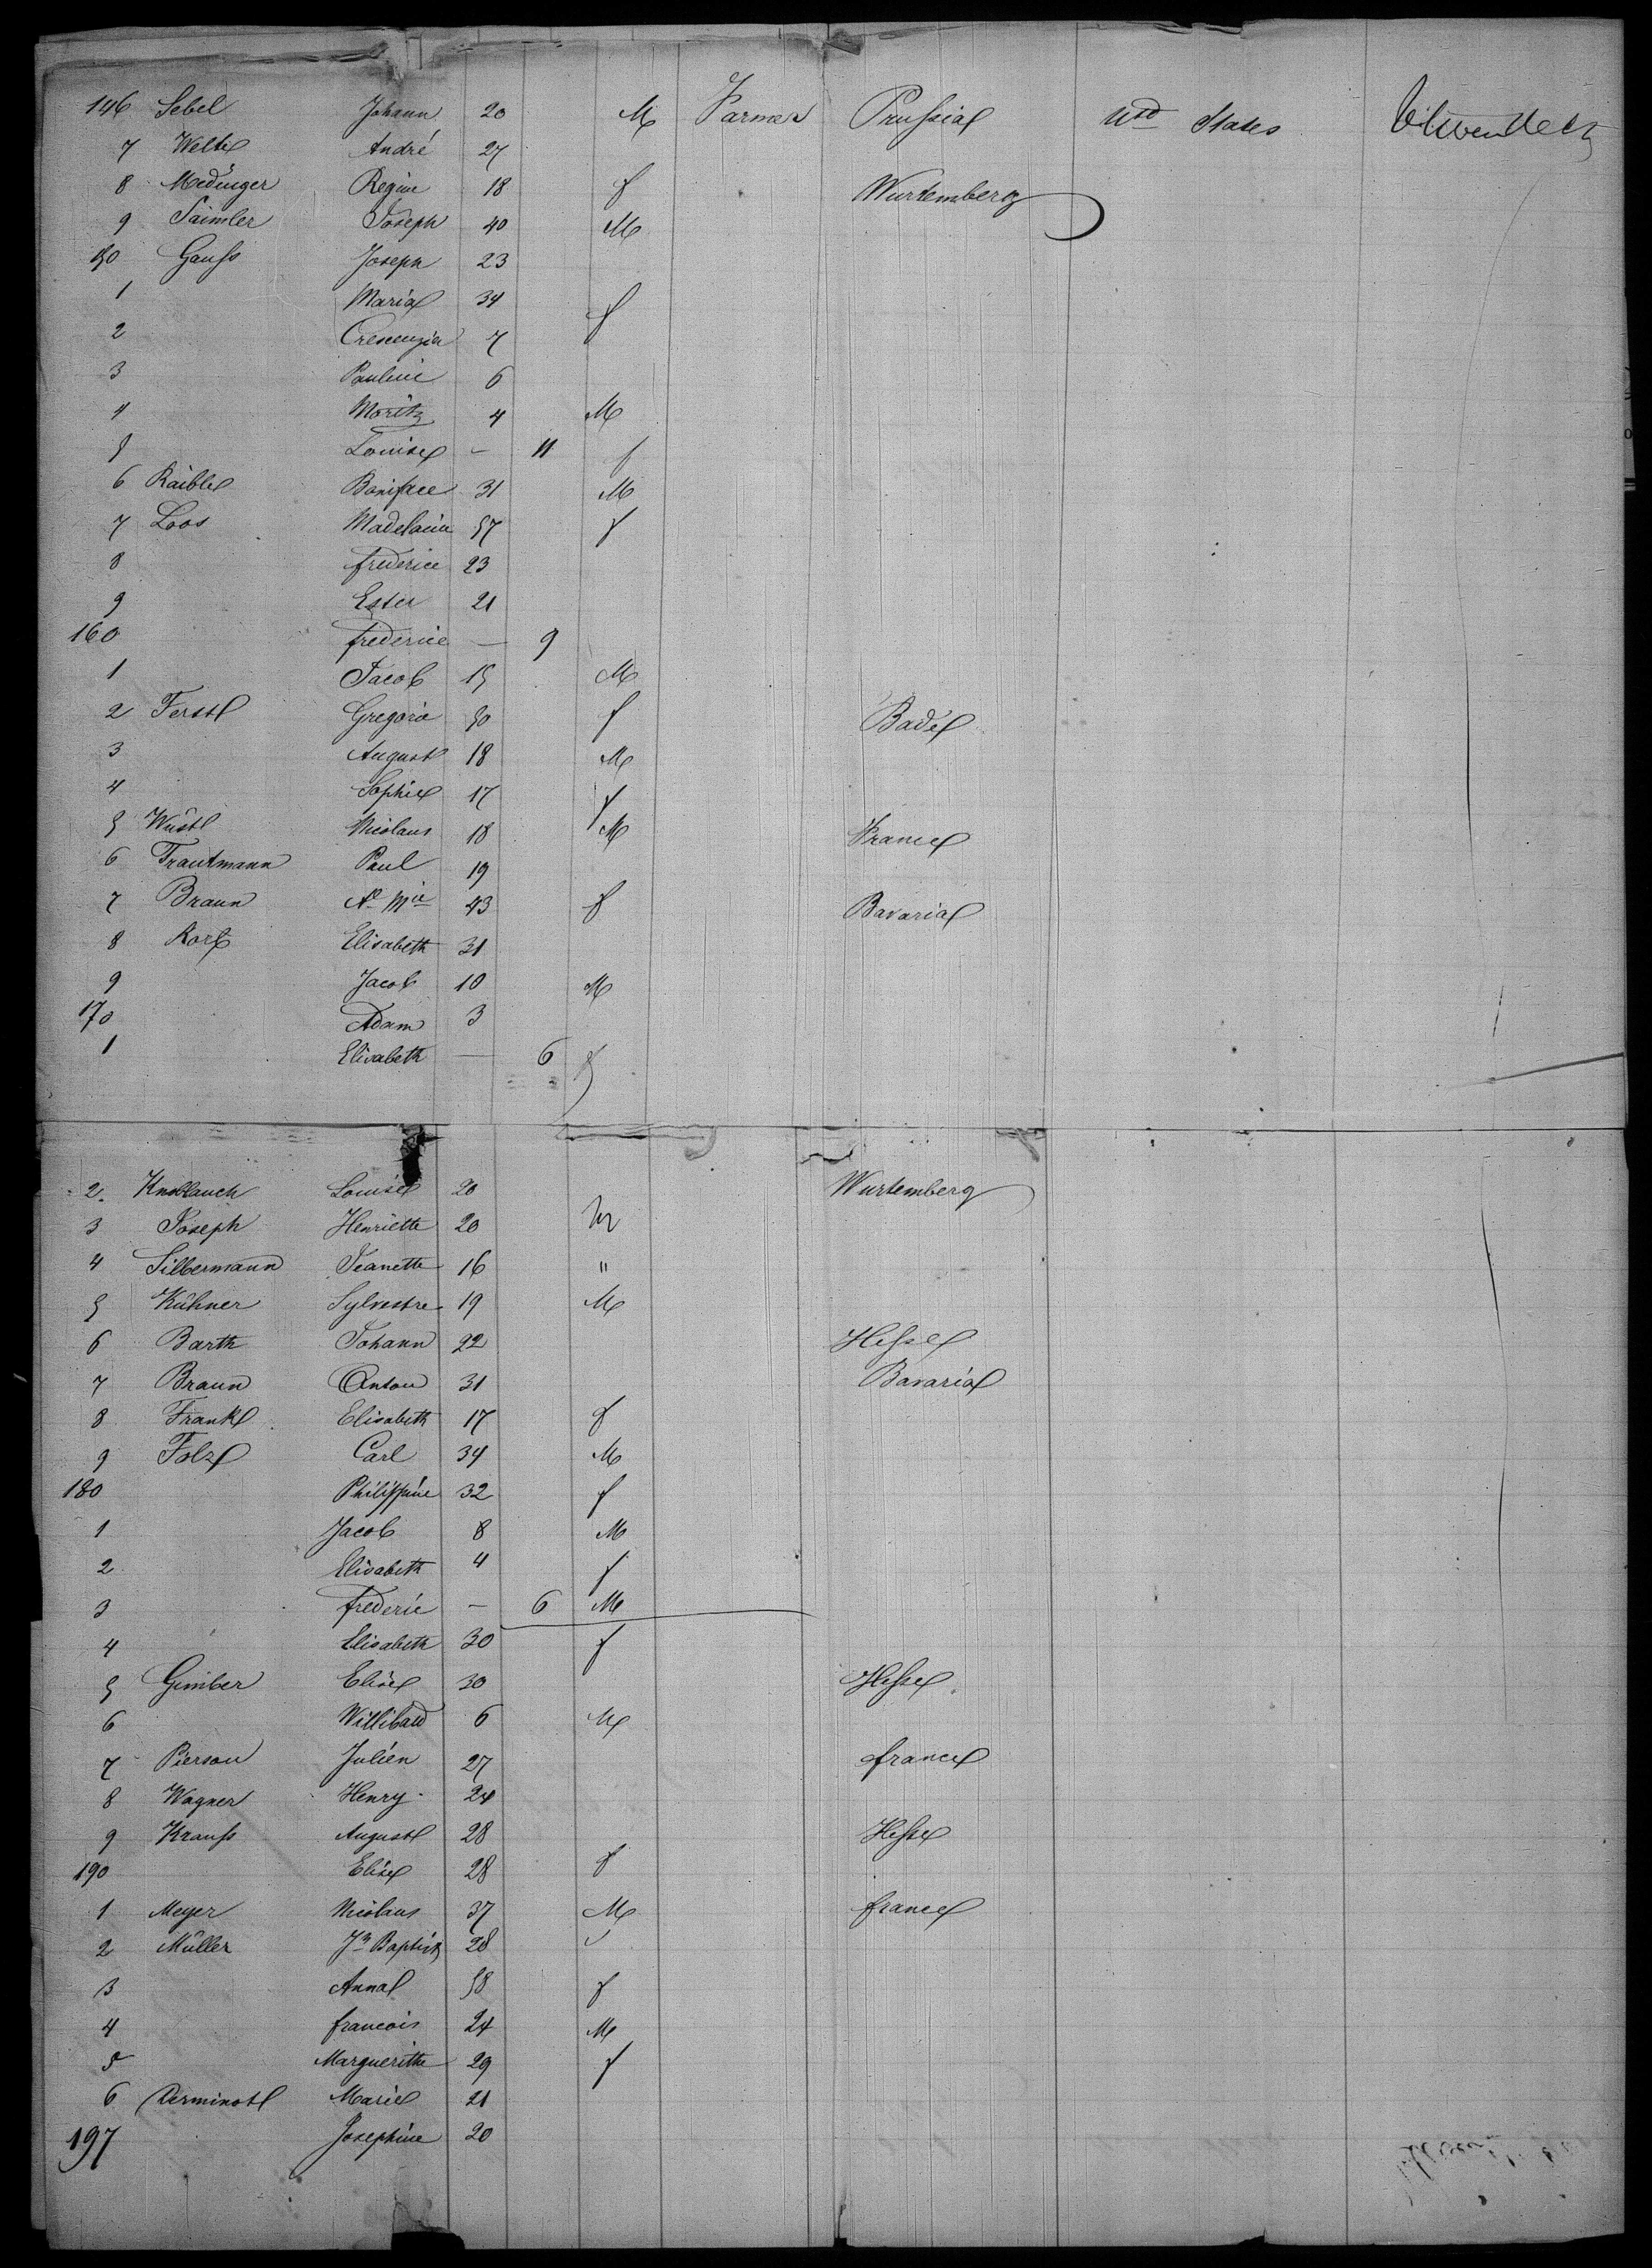 146 Sebel Johann 20 M Farmer Prussia Utd States
7 Welte André 27
8 Medinger Regine 18 f Wurtemberg
9 Saimler Joseph 40 M
150 Gauss Joseph 23
1 Maria 34 f
2 Crescenzia 7
3 Pauline 6
4 Moritz 4 M
5 Louise - 11 f
6 Raible Boniface 31 M
7 Loos Madelaine 57 f
8 frederice 23
9 Ester 21
160 frederice - 9
1 Jacob 15 M
2 Ferst Gregoria 50 f Bade
3 August 18 M
4 Sophie 17 f
5 Wust Nicolaus 18 M France
6 Trautmann Paul 19
7 Braun Ae Mie 43 f Bavaria
8 Elisabeth 31
9 Jacob 10 M
170 Adam 3
1 Elisabeth - 6 f
2. Knoblauch Louise 20 Wurtemberg
3 Joseph Henriette 20
4 Silbermann Jeanette 16 "
5 Kühner Sylvestre 19 M
6 Barth Johann 22 Hesse
7 Braun Anton 31 Bavaria
8 Frank Elisabeth 17 f
9 Folz Carl 34 M
180 Philippine 32 f
1 Jacob 8 M
2 Elisabeth 4 f
3 frederic - 6 M
4 Elisabeth 30 f
5 Gimber Elise 30 Hesse
6 Willibald 6 M
7 Pierson Julien 27 france
8 Wagner Henry 24
9 Krauss August 28 Hesse
190 Elise 28 f
1 Meyer Nicolaus 37 M france
2 Müller Jn Baptist 28
3 Anna 58 f
4 francois 24 M
5 Margueritte 29 f
6 Marie 21
197 Josephine 20